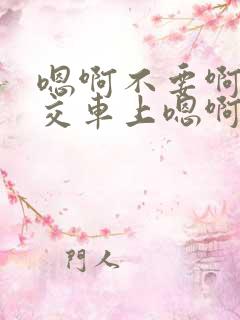 嗯啊不要啊
交車上嗯啊
門人